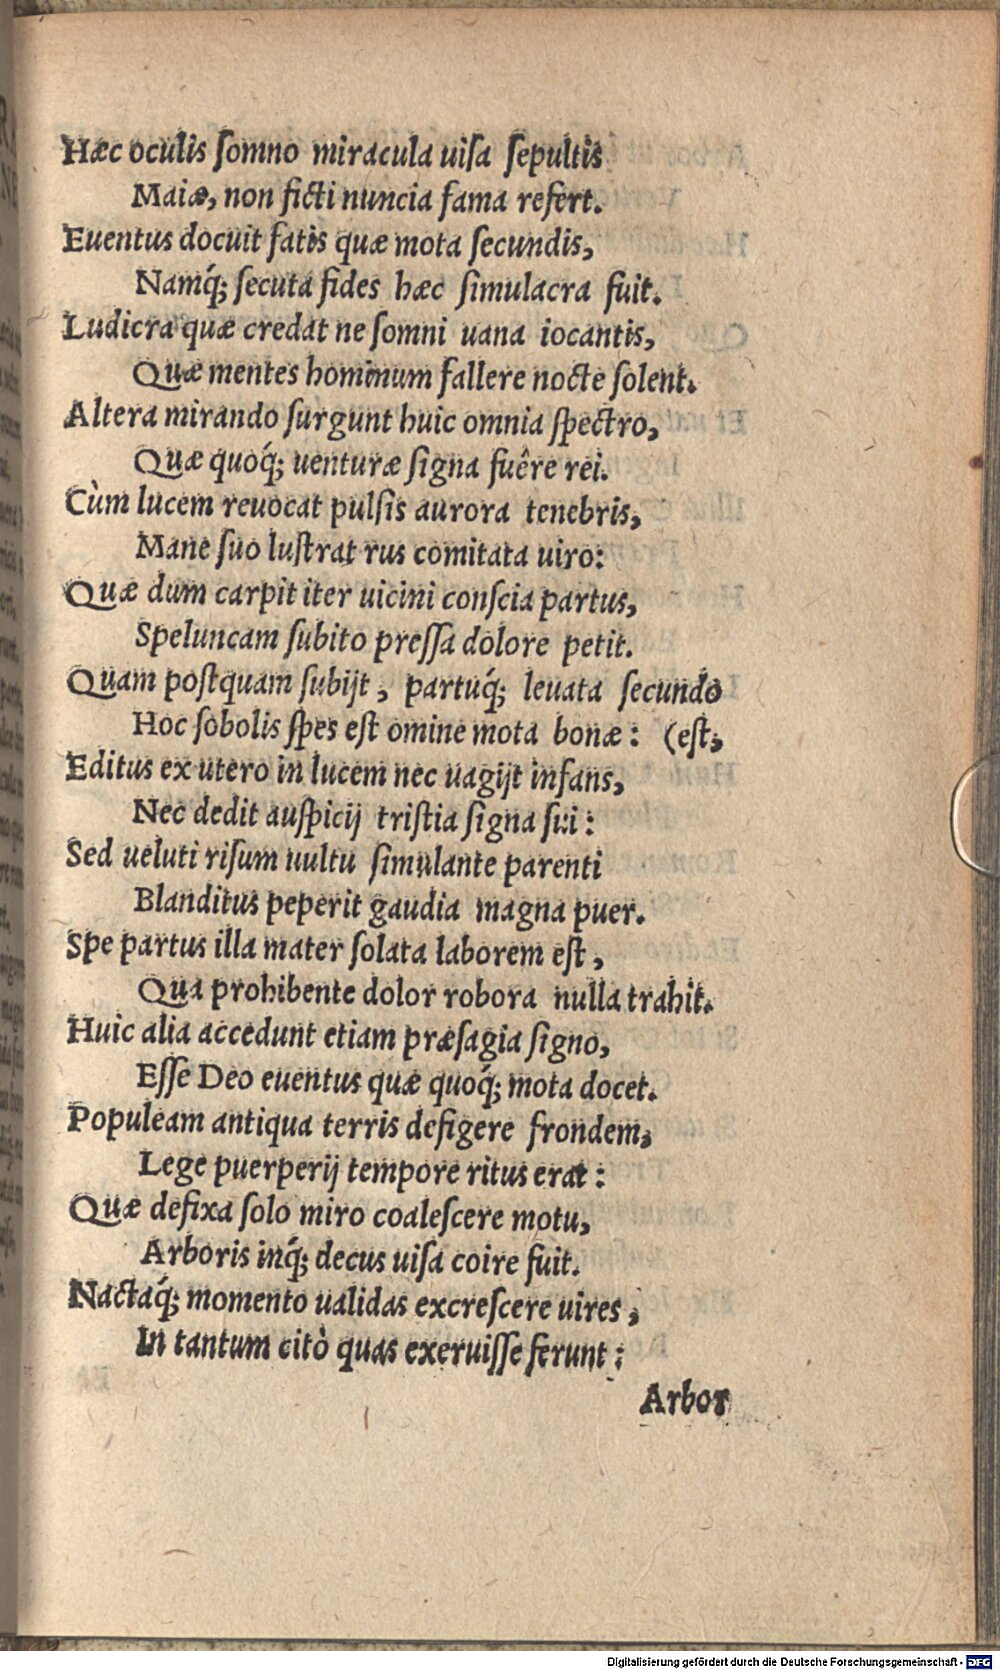 Hæc oculis ſomno miracula uiſa ſepultis
Maiæ, non ficti nuncia fama refert.
Euentus docuit fatis quæ mota ſecundis,
Namq́; ſecuta fides hæc ſimulacra fuit.
Ludicra quæ credat ne ſomni uana iocantis,
Quæ mentes hominum fallere nocte ſolent.
Altera mirando ſurgunt huic omnia ſpectro,
Quæ quoq́; uenturæ ſigna fuêre rei.
Cùm lucem reuocat pulſis aurora tenebris,
Mane ſuo luſtrat rus comitata uiro:
Quæ dum carpit iter uicini conſcia partus,
Speluncam ſubito preſſa dolore petit.
Quam poſtquam ſubijt, partuq́; leuata ſecundo
Hoc ſobolis ſpes eſt omine mota bonæ: (eſt,
Editus ex utero in lucem nec uagijt infans,
Nec dedit auſpicij triſtia ſigna ſui:
Sed ueluti riſum uultu ſimulante parenti
Blanditus peperit gaudia magna puer.
Spe partus illa mater ſolata laborem eſt,
Qua prohibente dolor robora nulla trahit.
Huic alia accedunt etiam præſagia ſigno,
Eſſe Deo euentus quæ quoq́; mota docet.
Populeam antiqua terris defigere frondem,
Lege puerperij tempore ritus erat:
Quæ defixa ſolo miro coaleſcere motu,
Arboris inq́; decus uiſa coire fuit.
Nactaq́; momento ualidas excreſcere uires,
In tantum citò quas exeruiſſe ferunt:
Arbor
Digitalisierung gefördert durch die Deutsche Forschungsgemeinschaft - DFG